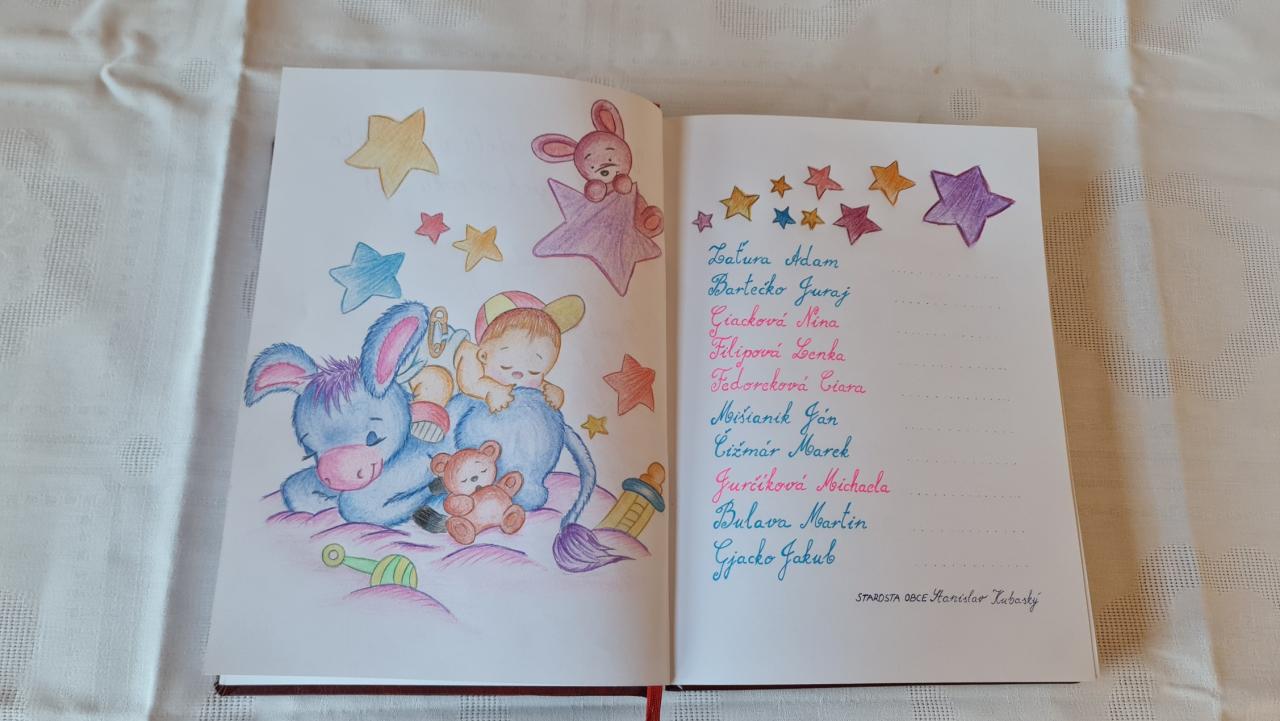 Zaťura Adam
Bartečko Juraj
Giacková Nina
Filipová Lenka
Fedoreková Ciara
Mišianik Ján
Čižmár Marek
Jurčíková Michaela
Bulava Martin
Gjacko Jakub
STAROSTA OBCE Stanislav Kubaský